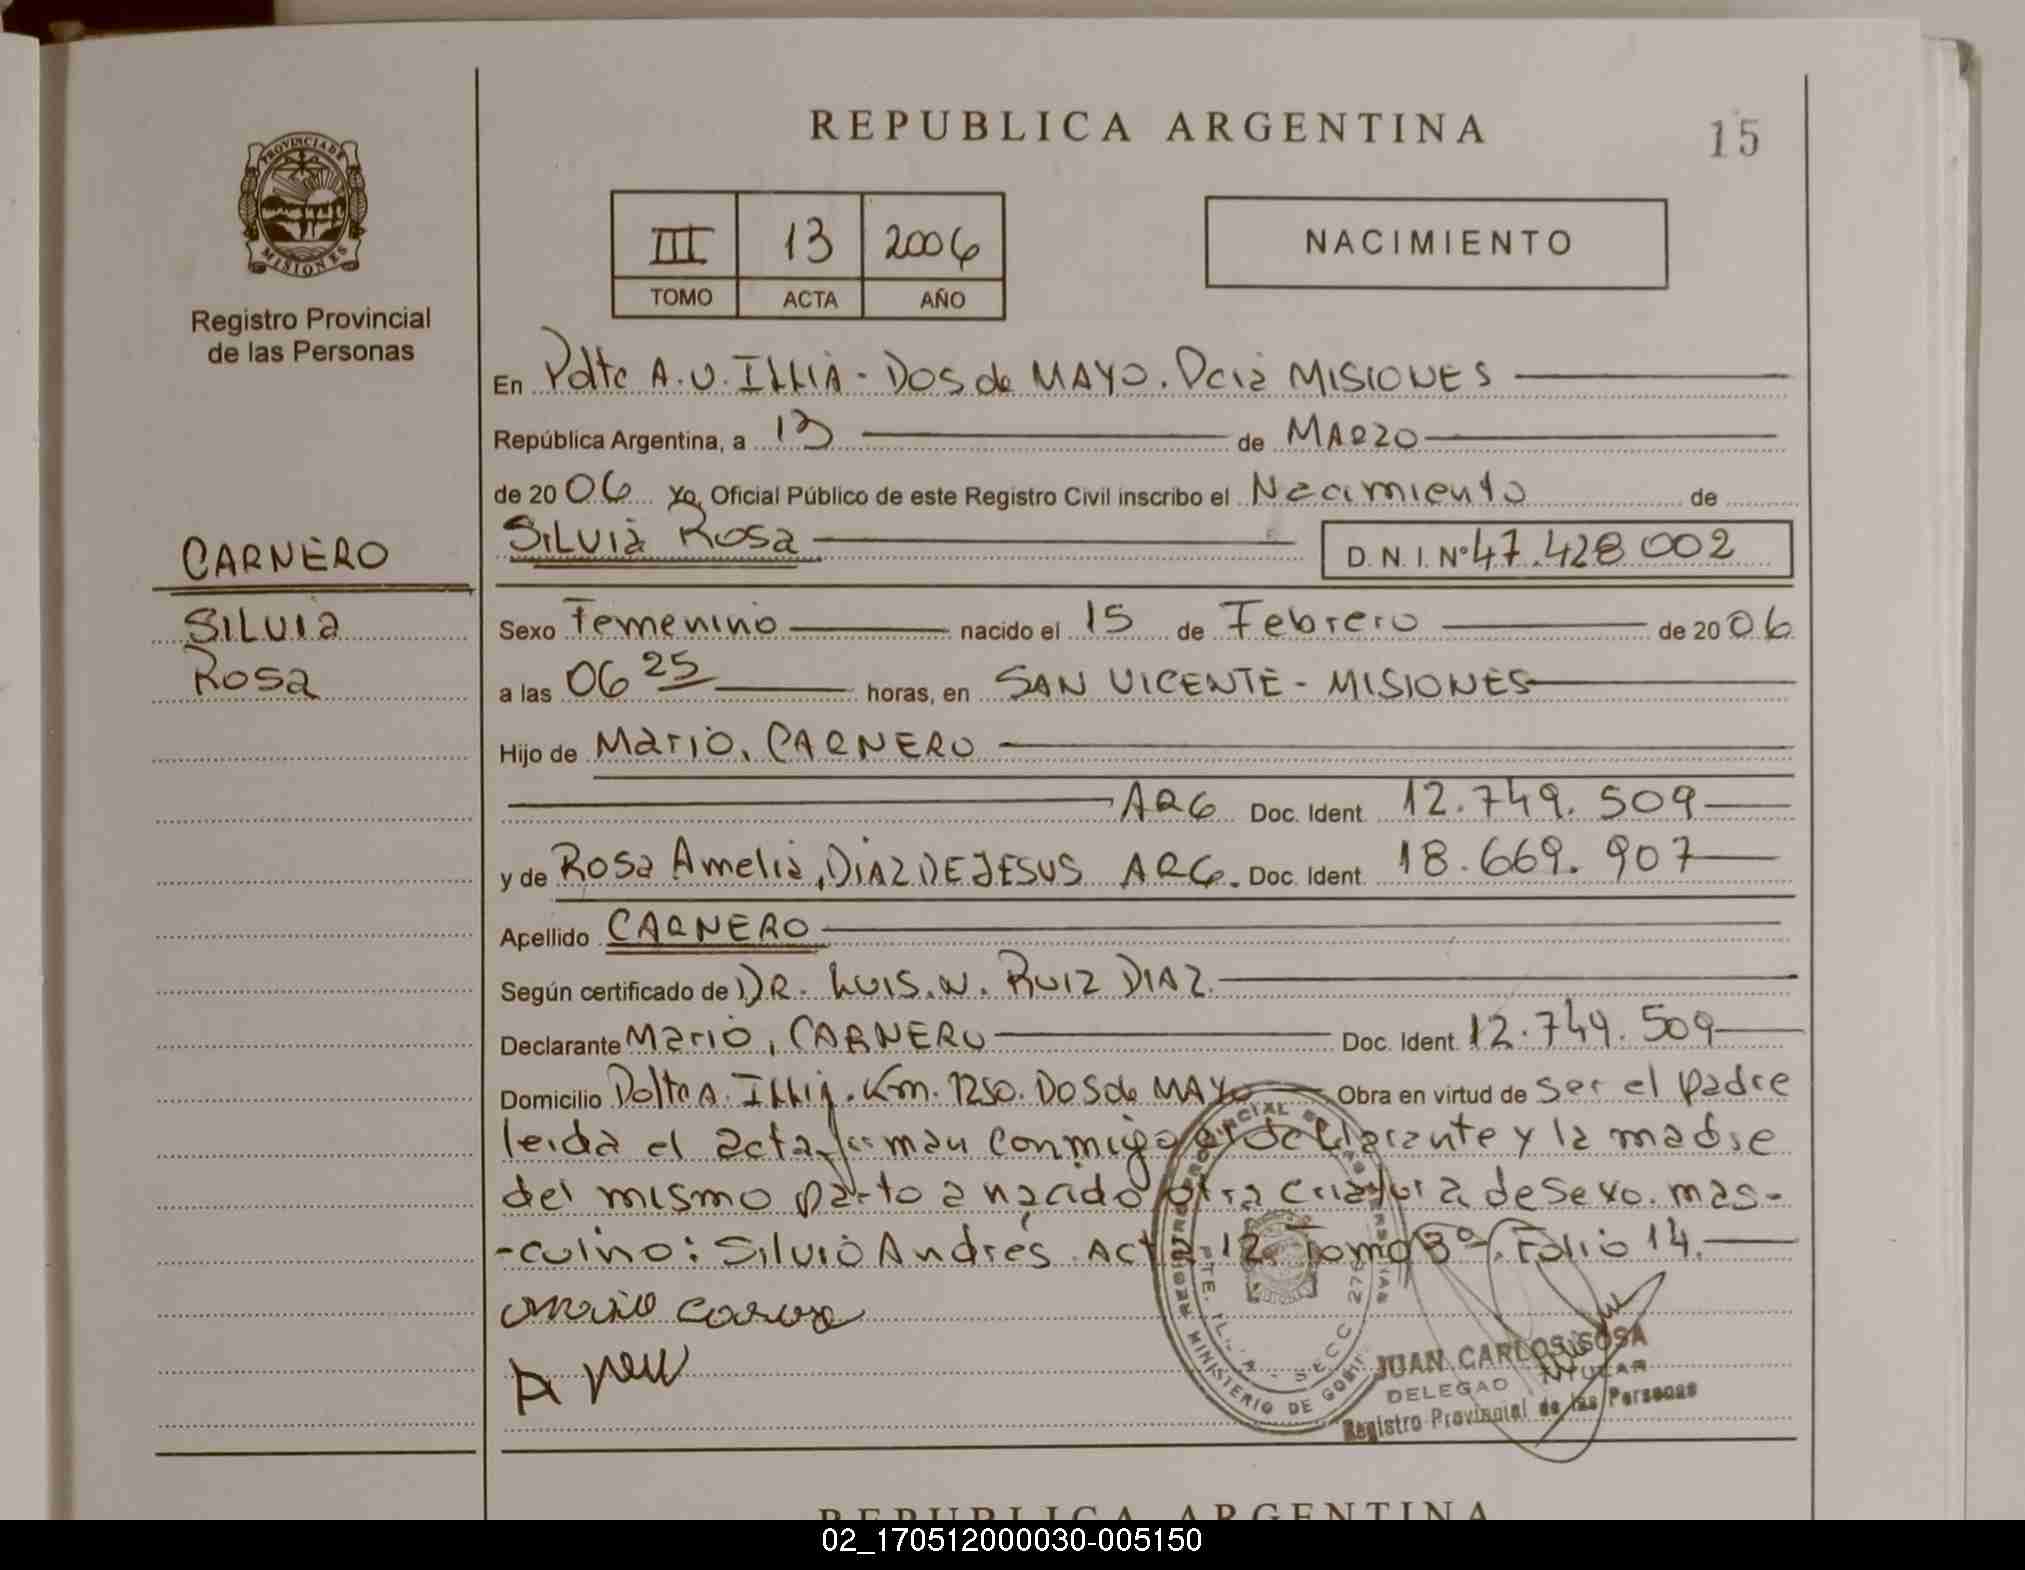 REPUBLICA ARGENTINA
15
PROVINCIA DE
MISIONES
Registro Provincial
de las Personas
III 13 2006
TOMO ACTA AÑO
NACIMIENTO
En Pdte A.U. ILLIA - DOS de MAYO. Pcia MISIONES
República Argentina, a 13 de MARZO
de 2006 Yo, Oficial Público de este Registro Civil inscribo el Nacimiento de
SILVIA ROSA D.N.I. Nº 47.428.002
CARNERO
SILVIA
ROSA
Sexo Femenino nacido el 15 de Febrero de 2006
a las 06 25 horas, en SAN VICENTE - MISIONES
Hijo de Mario, CARNERO
ARG Doc. Ident 12.749.509
y de Rosa Amelia, DIAZ DE JESUS ARG. Doc. Ident 18.669.907
Apellido CARNERO
Según certificado de DR. LUIS.N. RUIZ DIAZ.
Declarante Mario, CARNERO Doc. Ident. 12.749.509
Domicilio Pdte A. ILLIA. Km. 1250. DOS de MAYO Obra en virtud de ser el padre
leida el acta firman conmigo el declarante y la madre
del mismo parto a nacido otra criatura de sexo mas-
-culino: Silvio Andrés Acta 12 Tomo 3º, Folio 14.
REGISTRO PROVINCIAL DE LAS PERSONAS
MINISTERIO DE
SECC 276
JUAN CARLOS SOSA
DELEGADO TITULAR
Registro Provincial de las Personas
REPUBLICA ARGENTINA
02_170512000030-005150